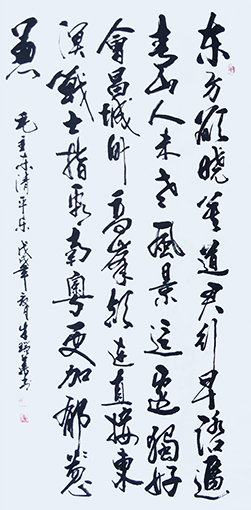 东方欲曉莫道君行早踏遍
青山人未老风景這边獨好
會昌城外高峯颠连直接東
溟戰士指看南粤更加郁々葱
葱
毛主席清平乐 戊戌年